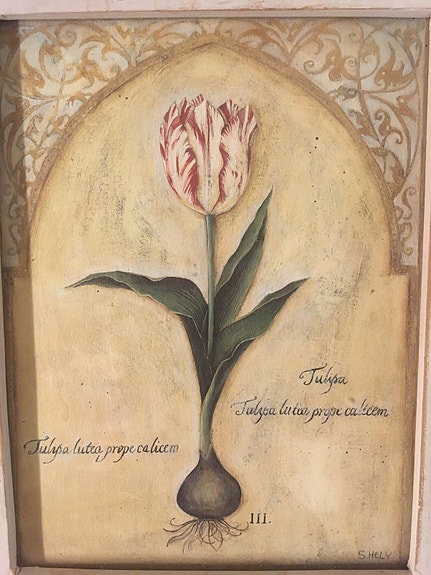 Tulipa
Tulipa lutea prope calicem
Tulipa lutea prope calicem
III.
S. HELY